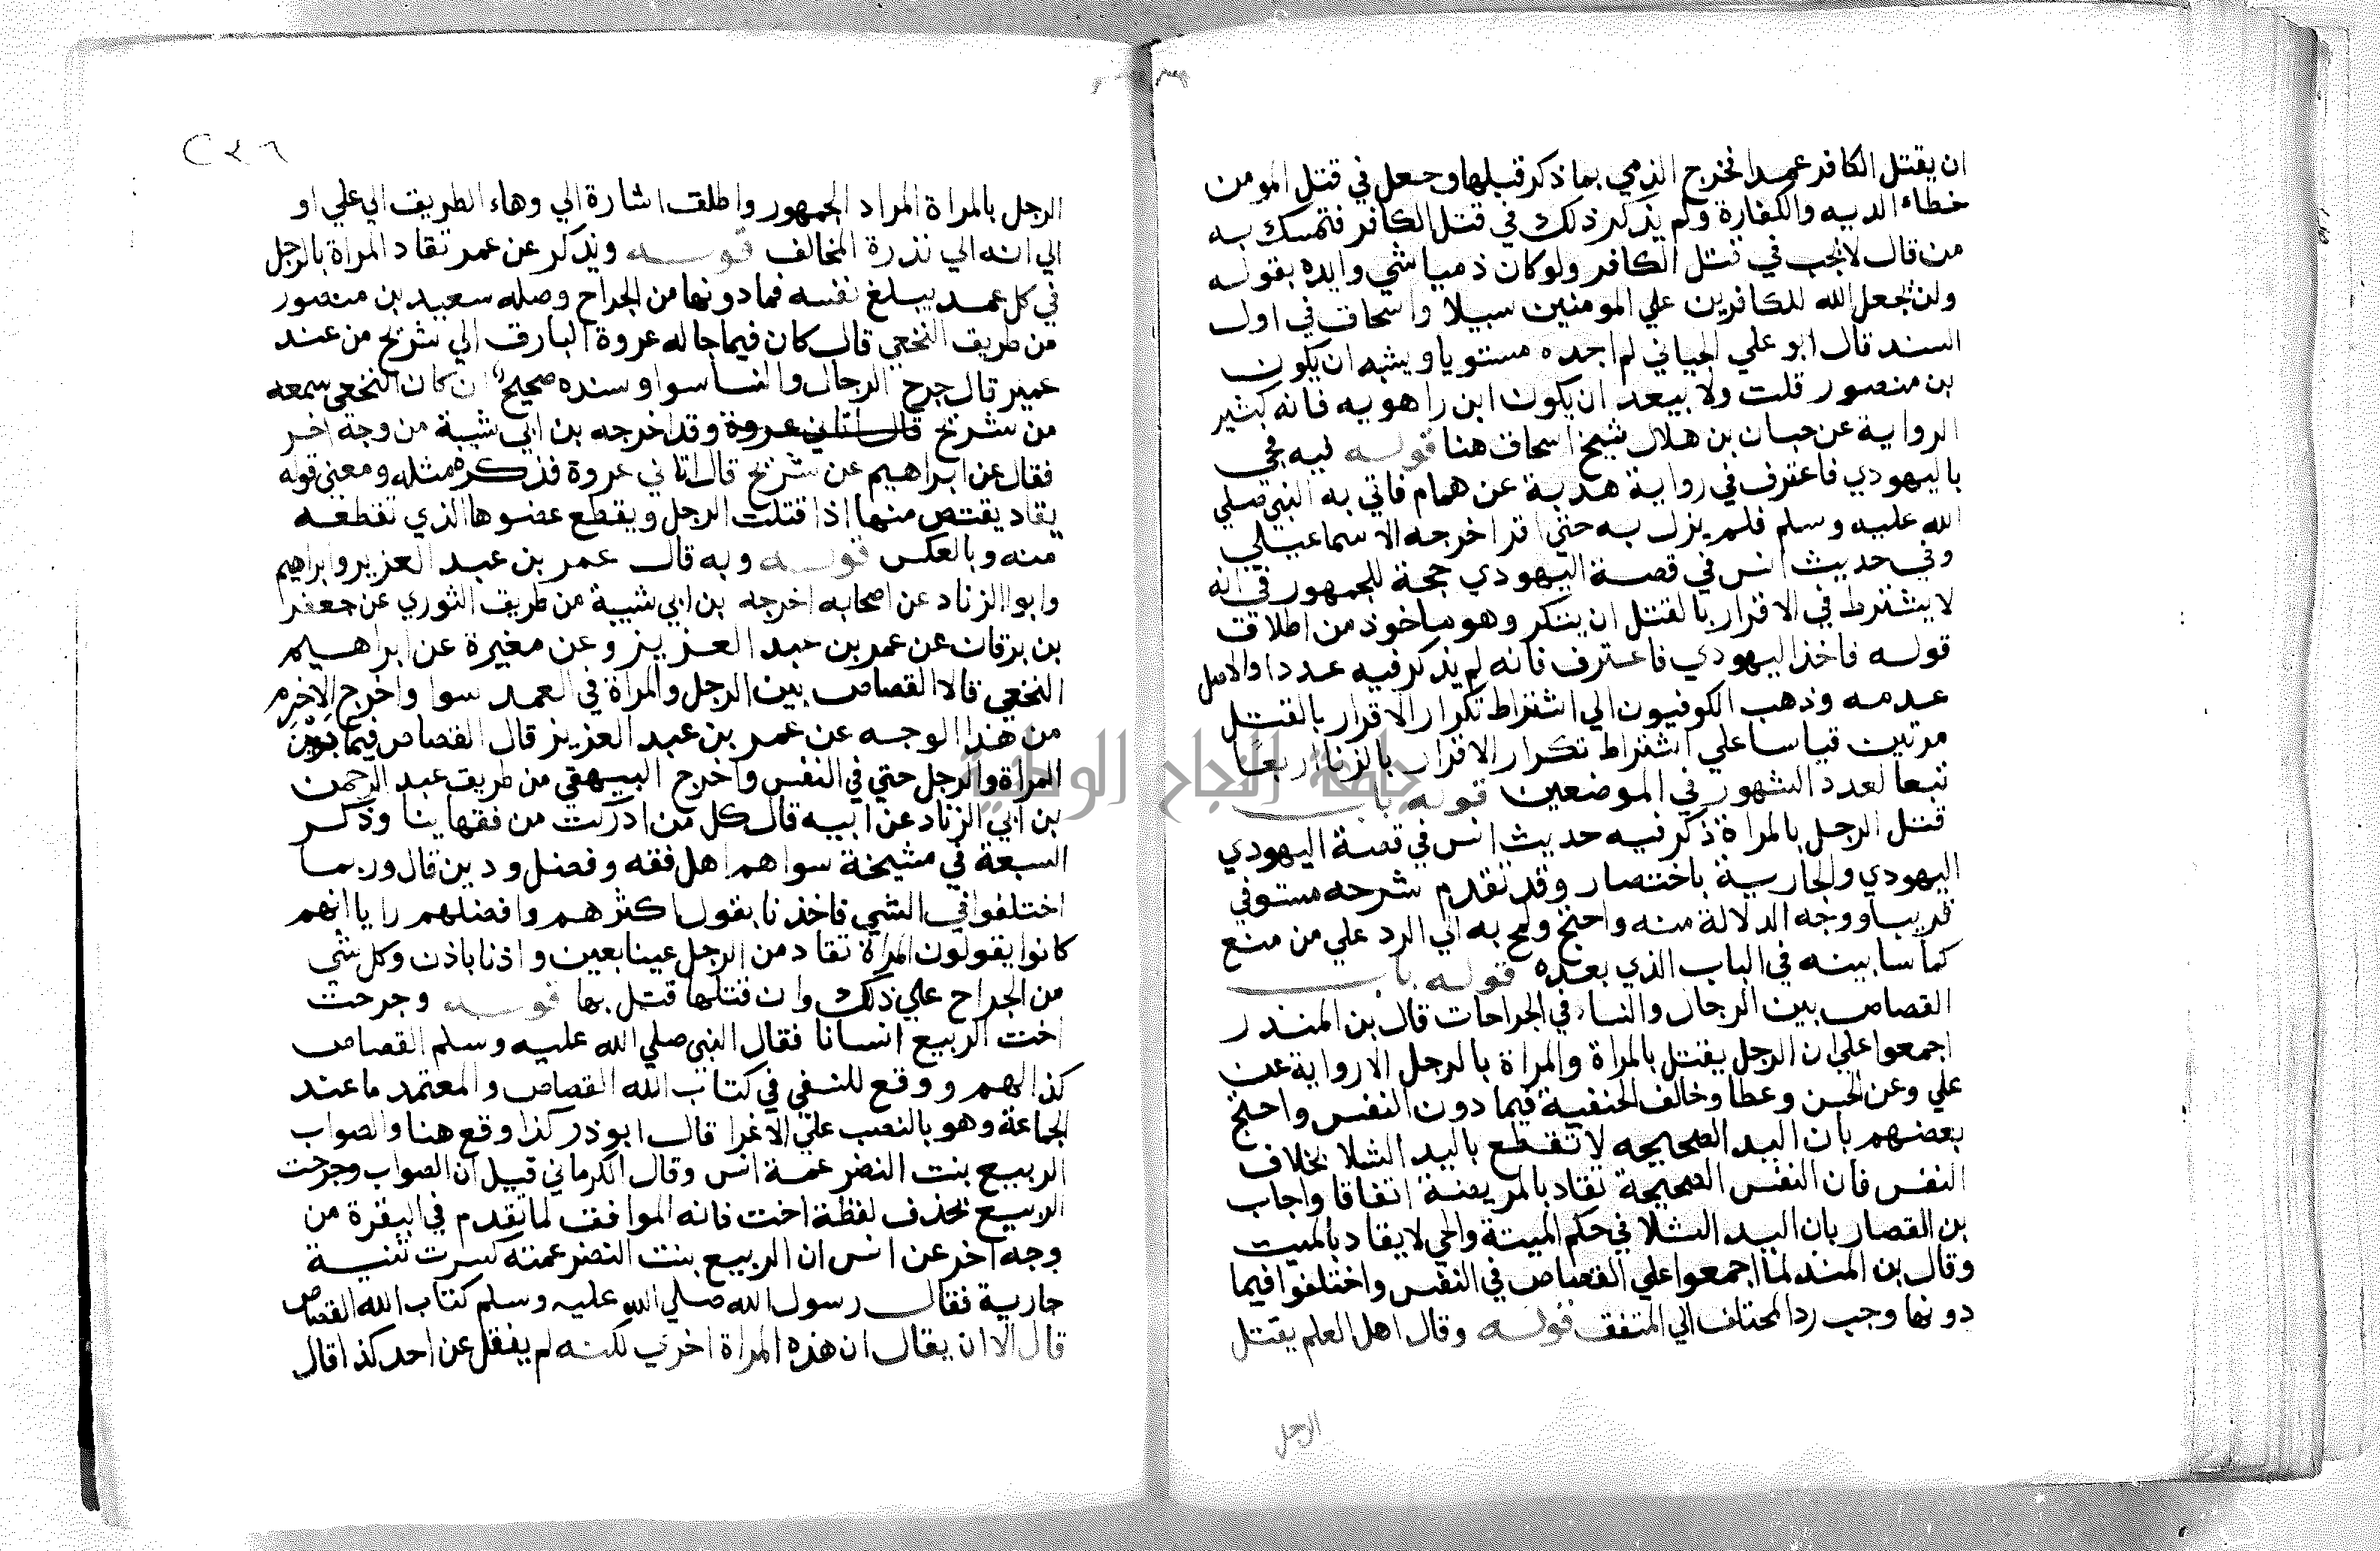 ان يقتل الكافر عمدا فخرج الذمي بما ذكر قبلها وجعل في قتل المومن
خطاء الديه والكفارة ولم يذكر ذلك في قتل الكافر فتمسك به
من قال لا تجب في قتل الكافر ولو كان ذميا شي وايده بقوله
ولن يجعل الله للكافرين علي المومنين سبيلا واسحاق في اول
السند قال ابو علي الجياني لم اجده مستويا ويشبه ان يكون
بن منصور قلت ولا يبعد ان يكون ابن راهويه فانه كثير
الرواية عن حبان بن هلال شيخ اسحاق هنا قوله فيه فجي
باليهودي فاعترف في رواية هدبة عن همام فاتي به النبي صلي
الله عليه وسلم فلم يزل به حتي اقر اخرجه الاسماعيلي
وفي حديث انس في قصة اليهودي حجة للجمهور في انه
لا يشترط في الاقرار بالقتل ان يتكرر وهو ماخوذ من اطلاق
قوله فاخذ اليهودي فاعترف فانه لم يذكر فيه عددا والاصل
عدمه وذهب الكوفيون الي اشتراط تكرار الاقرار بالقتل
مرتين قياسا علي اشتراط تكرار الاقرار بالزنا اربعا
تبعا لعدد الشهور في الموضعين قوله باب
قتل الرجل بالمراة ذكر فيه حديث انس في قصة اليهودي
اليهودي والجارية باختصار وقد تقدم شرحه مستوفي
قريبا ووجه الدلالة منه واحتج ولمح به الي الرد علي من منع
كما سابينه في الباب الذي بعده قوله باب
القصاص بين الرجال والنساء في الجراحات قال بن المنذر
اجمعوا علي ان الرجل يقتل بالمراة والمراة بالرجل الا رواية عن
علي وعن الحسن وعطا وخالف الحنفية فيما دون النفس واحتج
بعضهم بان اليد الصحيحه لا تقطع باليد الشلا بخلاف
النفس فان النفس الصحيحة تقاد بالمريضة اتفاقا واجاب
بن القصار بان اليد الشلا في حكم الميتة والحي لا يقاد بالميت
وقال بن المنذر لما اجمعوا علي القصاص في النفس واختلفوا فيما
دونها وجب رد المختلف الي المتفق قوله وقال اهل العلم يقتل
الرجل
٢٤٦
الرجل بالمراة المراد الجمهور واطلق اشارة الي وهاء الطريق الي علي او
الي انه الي نذرة المخالف قوله ويذكر عن عمر تقاد المراة بالرجل
في كل عمد يبلغ نفسه فما دونها من الجراح وصله سعيد بن منصور
من طريق النخعي قال كان فيما جا به عروة البارقي الي شريح من عند
عمر قال جرح الرجال والنسا سوا وسنده صحيح ان كان النخعي سمعه
من شريح قال اتاني عروة وقد اخرجه بن ابي شيبة من وجه اخر
فقال عن ابراهيم عن شريح قال اتاني عروة فذكره مثله ومعني قوله
يقاد يقتص منها اذا قتلت الرجل ويقطع عضوها الذي تقطعه
منه وبالعكس قوله وبه قال عمر بن عبد العزيز وابراهيم
وابو الزناد عن اصحابه اخرجه بن ابي شيبة من طريق الثوري عن جعفر
بن برقان عن عمر بن عبد العزيز وعن مغيرة عن ابراهيم
النخعي قالا القصاص بين الرجل والمراة في العمد سوا واخرج الاثرم
من هذا الوجه عن عمر بن عبد العزيز قال القصاص فيما بين
المراة والرجل حتي في النفس واخرج البيهقي من طريق عبد الرحمن
بن ابي الزناد عن ابيه قال كل من ادركت من فقهاينا وذكر
السبعة في مشيخة سواهم اهل فقه وفضل ودين قال وربما
اختلفوا في الشي فاخذنا بقول اكثرهم وافضلهم رايا انهم
كانوا يقولون المراة تقاد من الرجل عينا بعين واذنا باذن وكل شي
من الجراح علي ذلك وان قتلها قتل بها قوله وجرحت
اخت الربيع انسانا فقال النبي صلي الله عليه وسلم القصاص
كذا لهم ووقع للنسفي في كتاب الله القصاص والمعتمد ما عند
الجماعة وهو بالنصب علي الاغرا قال ابو ذر كذا وقع هنا والصواب
الربيع بنت النضر عمة انس وقال الكرماني قيل ان الصواب وجرحت
الربيع بحذف لفظة اخت فانه الموافق لما تقدم في البقرة من
وجه اخر عن انس ان الربيع بنت النضر عمته كسرت ثنية
جارية فقال رسول الله صلي الله عليه وسلم كتاب الله القصاص
قال الا ان يقال ان هذه المراة اخري لكنه لم ينقل عن احد كذا قال
جامعة النجاح الوطنية